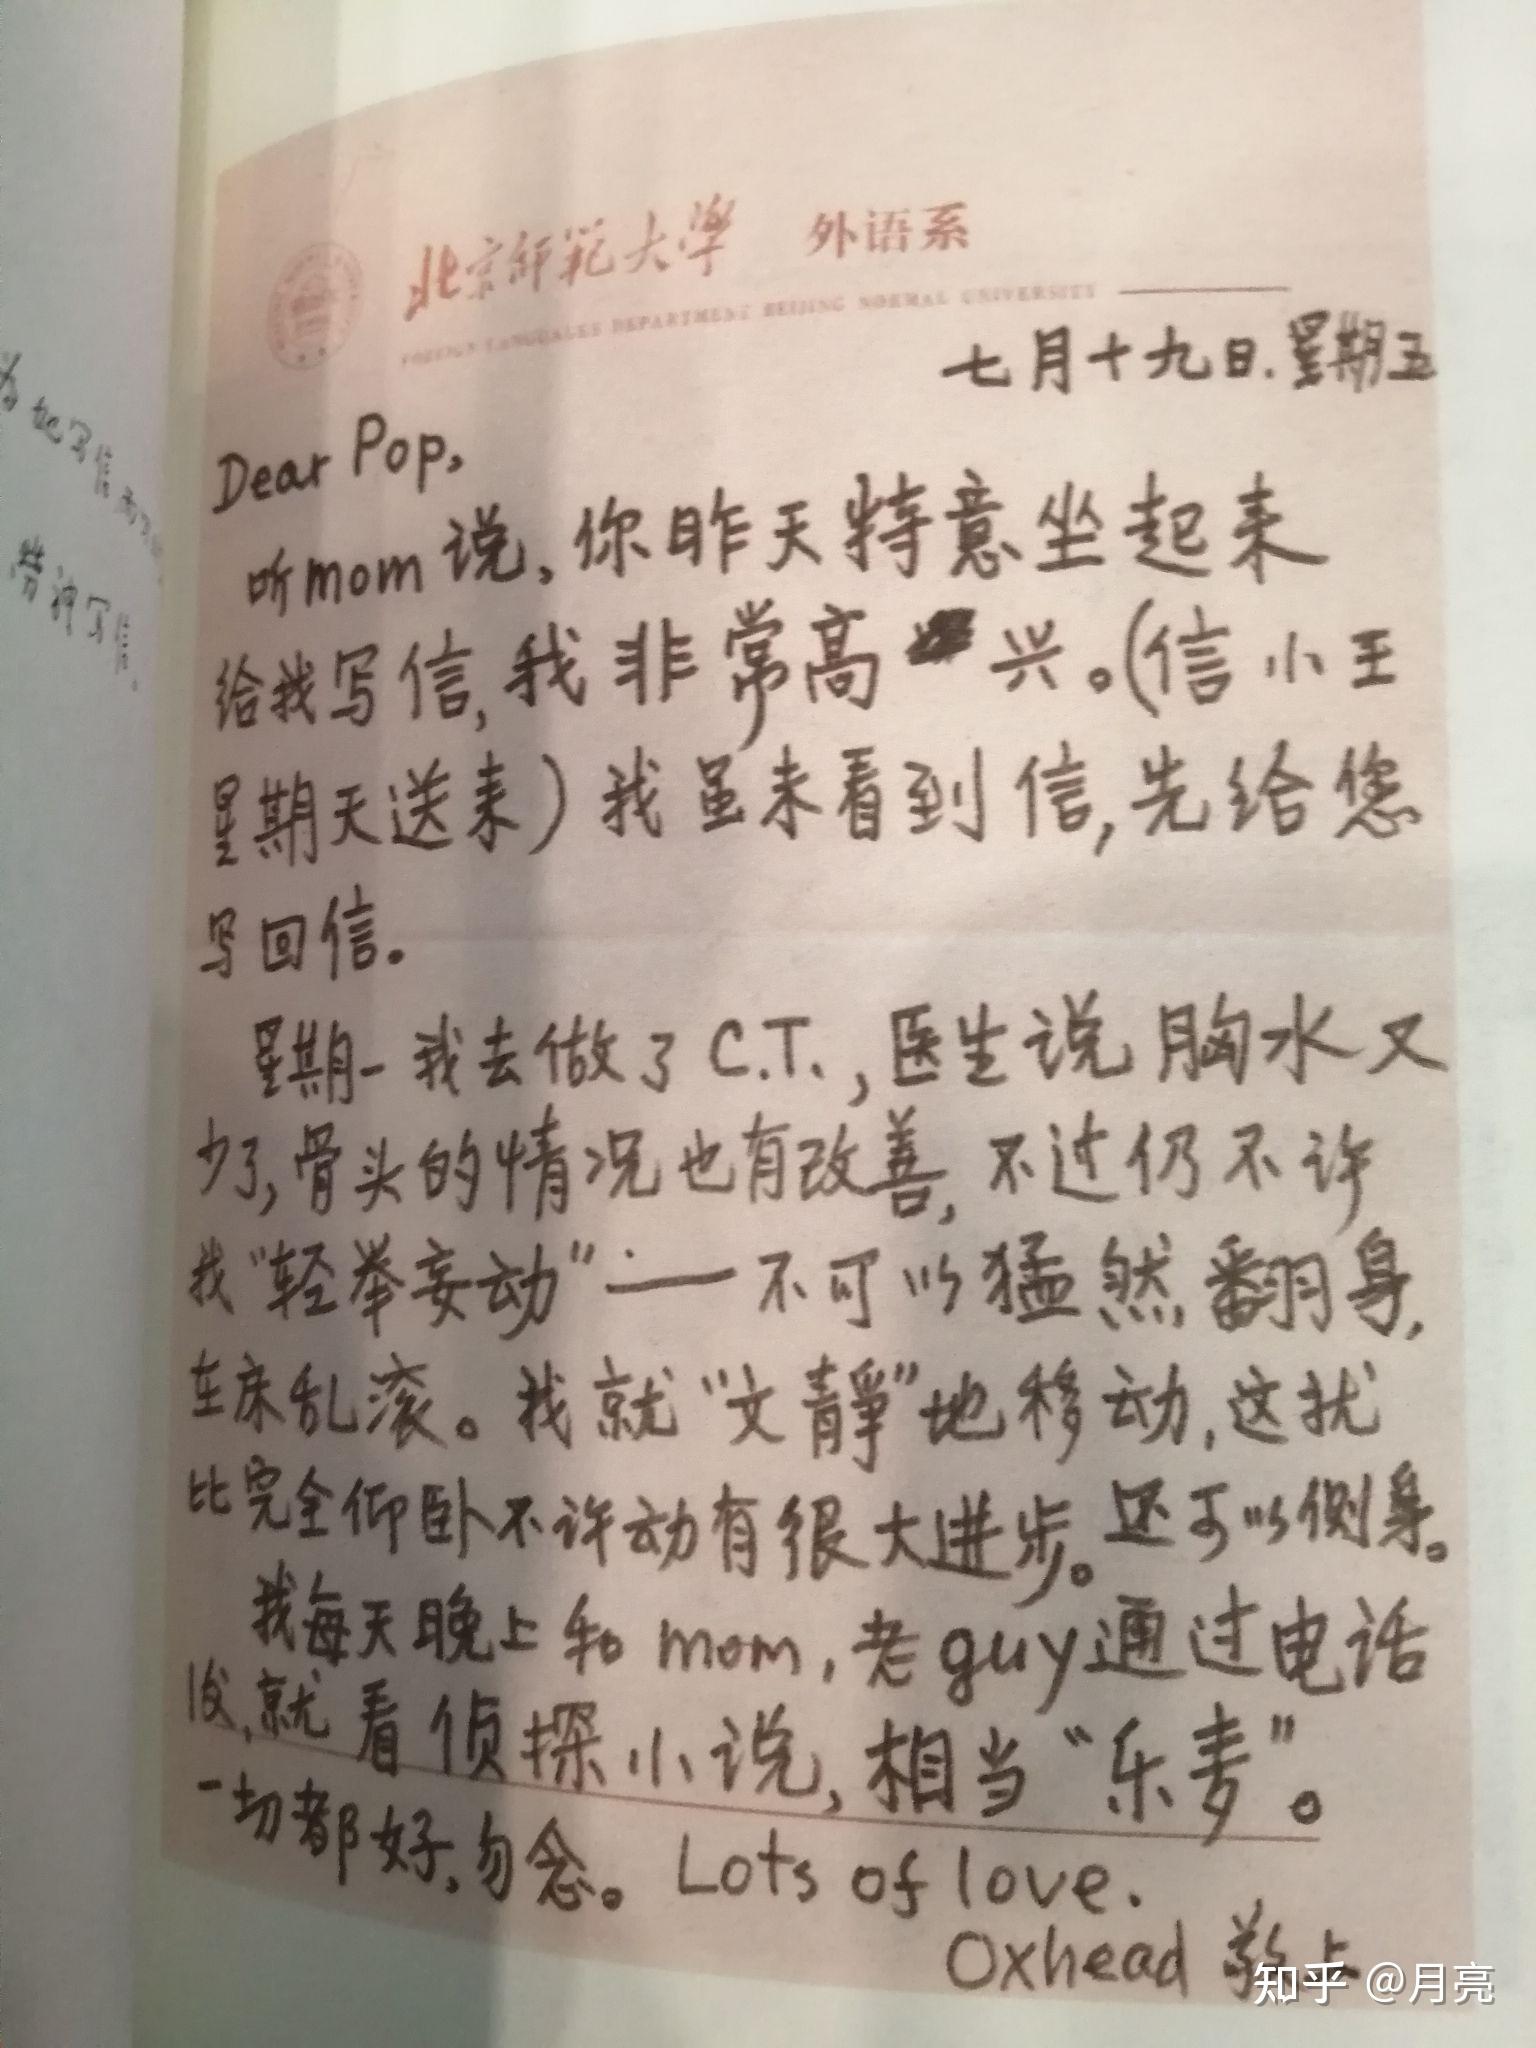 为她写信而
劳神写信。
北京师范大学 外语系
FOREIGN LANGUAGES DEPARTMENT BEIJING NORMAL UNIVERSITY
七月十九日.星期五
Dear Pop,
听mom说,你昨天特意坐起来
给我写信,我非常高兴。(信小王
星期天送来)我虽未看到信,先给您
写回信。
星期一我去做了C.T.,医生说胸水又
少了,骨头的情况也有改善,不过仍不许
我“轻举妄动”——不可以猛然翻身,
在床乱滚。我就“文静”地移动,这就
比完全仰卧不许动有很大进步。还可以侧身。
我每天晚上和mom,老guy通过电话
后,就看侦探小说,相当“乐麦”。
一切都好,勿念。Lots of love.
Oxhead 敬上
知乎 @月亮